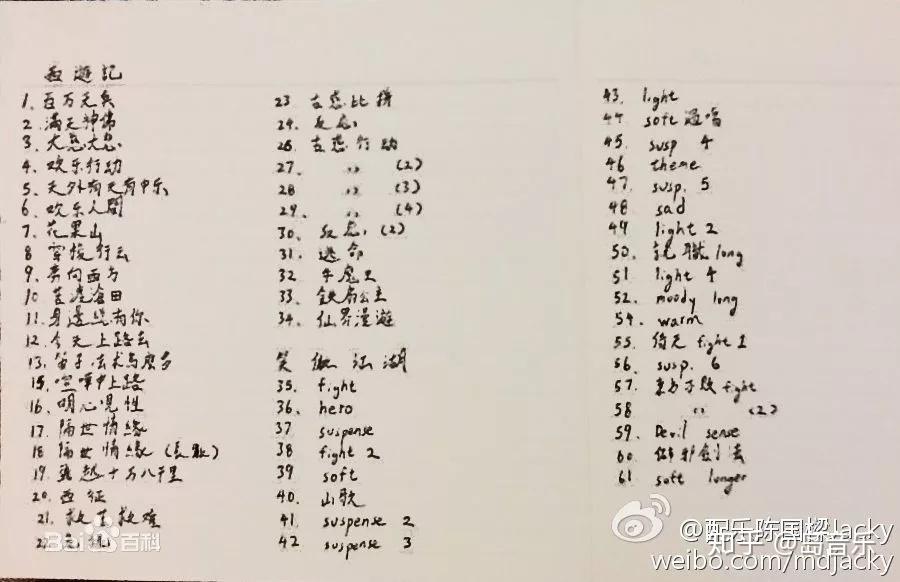 西遊記
1. 百万天兵
2. 滿天神佛
3. 大惡大惡
4. 欢乐行动
5. 天外有天有中乐
6. 欢乐人間
7. 花果山
8 穿梭行云
9. 奔向西方
10 苦渡沧田
11. 身邊總有你
12. 今天上路去
13. 笛子
15. 喧嘩中上路
16. 明心見性
17. 隔世情緣
18 隔世情緣(長版)
19. 飛越十万八千里
20. 西征
21. 救苦救难
22.
23 古惑比拼
24.
26 古惑行动
27. 〃 (2)
28 〃 (3)
29. 〃 (4)
30. (2)
31. 逃命
32 牛魔王
33. 鉄扇公主
34. 仙界漫遊
笑傲江湖
35. fight
36. hero
37 suspense
38 fight 2
39 soft
40. 山歌
41. suspense 2
42 suspense 3
43. light
44. soft 獨唱
45. susp 4
46 theme
47. susp. 5
48 sad
49 light 2
50. long
51 light 4
52. moody long
54. warm
55. 倚天 fight 1
56. susp. 6
57. 東方不敗 fight
58 〃 (2)
59. Devil sense
60. 辟邪劍法
61 soft longer
Baidu百科
知乎 @岛音乐
@配乐陈国樑Jacky
weibo.com/mdjacky